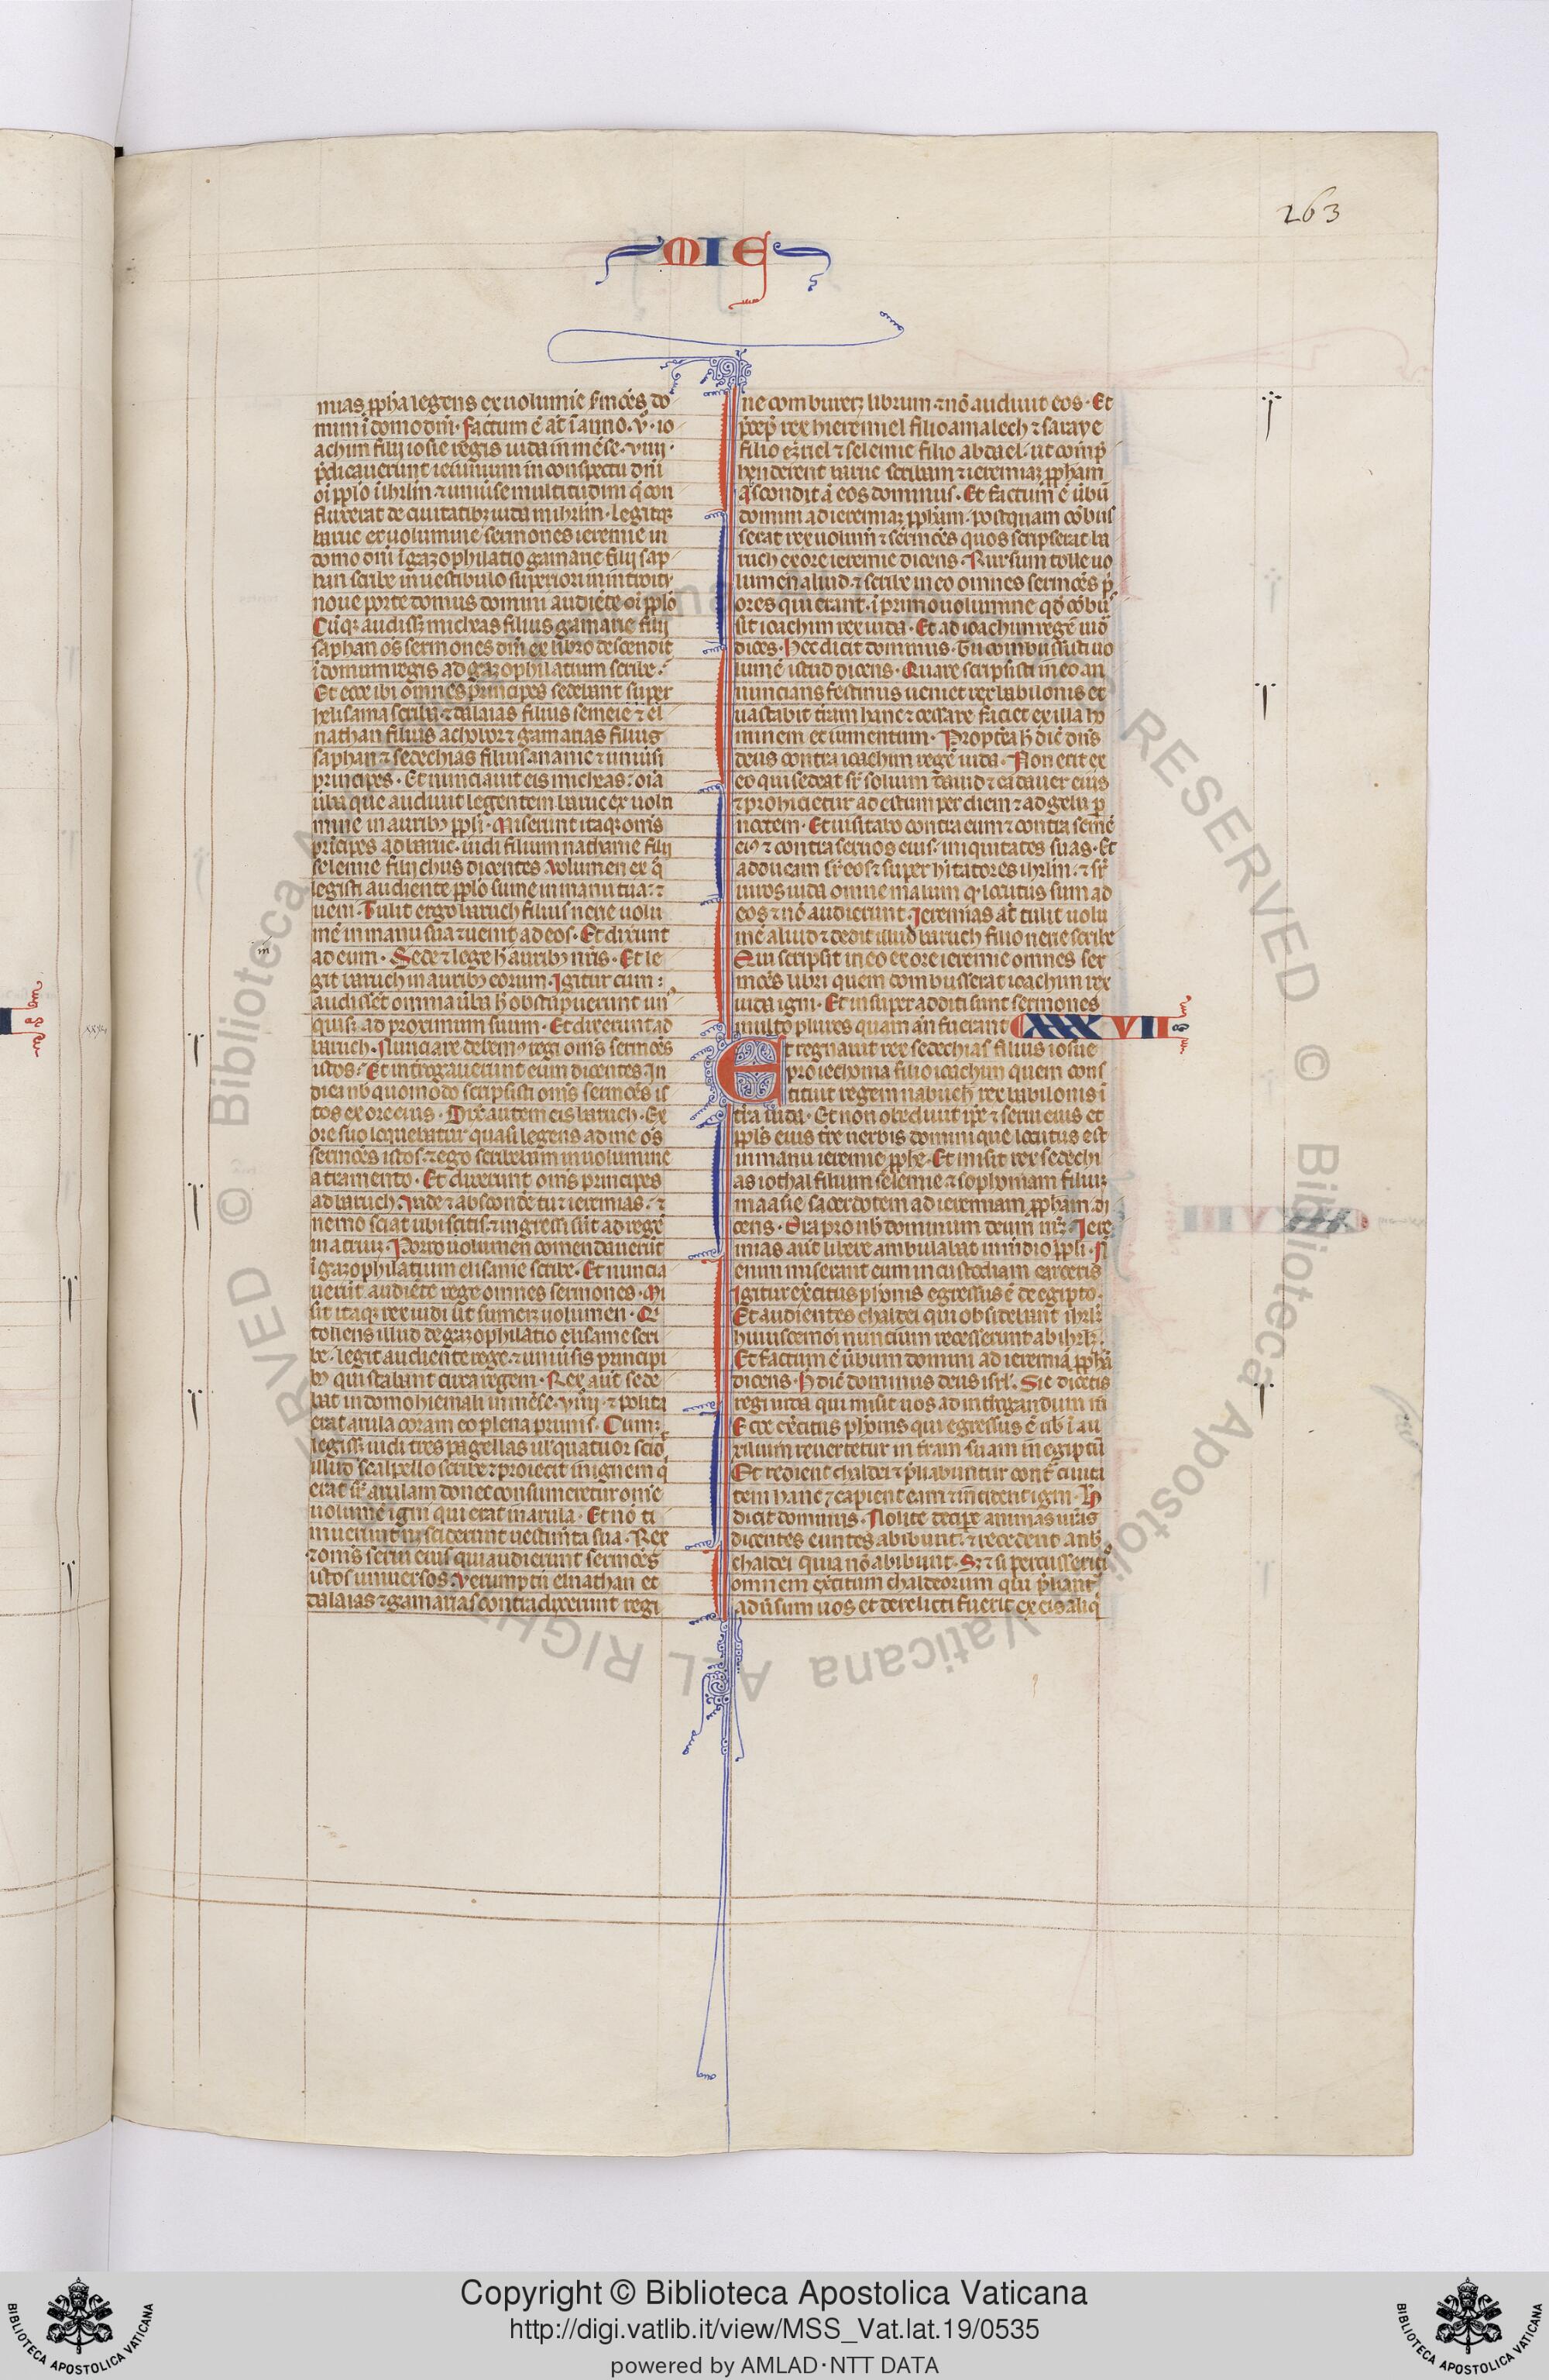 263
MIE
mias ꝓpha legens ex uolumīe ẜmōēs do
mini ī domo dn̄i · Factum ē aūt ī anno · v̄ · io
achim filij iosie regis iuda in mēse · viiij ·
p̄dicauerunt ieiunium in conspectu dn̄i
oī pp̄lo ī ihrlm̄ ⁊ uniuīse multitudini q̄ con
fluxerat de ciuitatibꝫ iuda in ihrlm̄ · Legitqꝫ
baruc ex uolumine sermones ieremie in
domo dn̄i ī gazophilatio gamarie filij sap
han scribe in uestibulo superiori in introitu
noue porte domus domini audiēte oī pp̄lo
Cūqꝫ audissꝫ micheas filius gamarie filij
saphan oēs sermones dn̄i ex libro descendit
ī domum regis ad gazophilatium scribe ·
Et ecce ibi omnes principes sedebant super
helisama scriba ⁊ dalaias filius semeie ⁊ el
nathan filius achobor ⁊ gamarias filius
saphan ⁊ sedechias filius ananie ⁊ uniuīsi
principes · Et nunciauit eis micheas · oīa
uība que audiuit legentem baruc ex uolu
mine in auribꝫ pp̄li · Miserunt itaqꝫ om̄s
principes ad baruc · iudi filium nathanie filij
selemie filij chus dicentes · Volumen ex q̄
legisti audiente pp̄lo sume in manu tua · ⁊
ueni · Tulit ergo baruch filius nerie uolu
mē in manu sua ⁊ uenit ad eos · Et dixerunt
ad eum · Sede ⁊ lege h̄ auribꝫ nr̄is · Et le
git baruch in auribꝫ eorum · Igitur cum
audissēt omnia uība h̄ obstupuerunt un̄
quisqꝫ ad proximum suum · Et dixerunt ad
baruch · Nunciare debemꝰ regi om̄s sermōēs
istos · Et interrogauerunt eum dicentes · In
dica nob̄ quomodo scripsisti om̄s sermōēs is
tos ex ore eius · Dix̄ autem eis baruch · Ex
ore suo loquebatur quasi legens ad me oēs
sermōēs istos · ⁊ ego scribebam in uolumine
atramento · Et dixerunt om̄s principes
ad baruch · Uade ⁊ absconde̅ tu ⁊ ieremias · ⁊
nemo sciat ubi scitis · ⁊ ingressi sūt ad regē
in atrium · Porro uolumen comendauerūt
ī gazophilatium elisame scribe · Et nuncia
uerūt audiēte rege omnes sermones · Mi
sit itaqꝫ rex iudi ut sumerꝫ uolumen · Q̄
tollens illud de gazophilatio elisame scri
be · legit audiente rege · ⁊ uniuīsis principi
bꝫ qui stabant circa regem · Rex aūt sede
bat in domo hiemali in mēse · viiij · ⁊ posita
erat arula coram eo plena prunis · Cumqꝫ
legissꝫ iudi tres pagellas uīl quatuor scid̄
illud scalpello scribe ⁊ proiecit in ignem q̄
erat sr̄ arulam donec consumeretur om̄e
uolumē igni qui erat in arula · Et nō ti
muerunt nꝫ sciderunt uestim̄ta sua · Rex
⁊ om̄s serui eius qui audierunt sermōēs
istos uniuersos · Verumptn̄ elnathan et
dalaias ⁊ gamarias contradixerunt regi
ne comburerꝫ librum · ⁊ nō audiuit eos · Et
p̄cep̄ rex hieremiel filio amalech ⁊ saraye
filio ezriel ⁊ selemie filio abdael · ut comp̄
henderent baruc scribam ⁊ ieremiaꝫ ꝓpham
Abscondit aūt eos dominus · Et factum ē ūbū
domini ad ieremiaꝫ ꝓpham · postquam cōbus
serat rex uolum̄ ⁊ sermōēs quos scripserat ba
ruch ex ore ieremie dicens · Rursum tolle uo
lumen aliud · ⁊ scribe in eo omnes sermōēs p̄
ores qui erant · ī primo uolumine qd̄ cōbus
sit ioachim rex iuda · Et ad ioachim regē iud̄
dices · Hec dicit dominus · Tu combussisti uo
lumē istud dicens · Quare scripsisti in eo an
nuncians festinus ueniet rex babilonis et
uastabit terram hanc ⁊ cessare faciet ex illa ho
minem et iumentum · Propterea h̄ dic̄ dn̄s
deus contra ioachim regē iuda · Non erit ex
eo qui sedeat sr̄ solium dauid ⁊ cadauer eius
⁊ prohicietur ad estum per diem ⁊ ad gelu p̄
noctem · Et uisitabo contra eum ⁊ contra semē
eiꝰ ⁊ contra seruos eius · iniquitates suas · Et
adducam sr̄ eos · ⁊ super hītatores ihrlm̄ · ⁊ sr̄
uiros iuda omne malum qꝫ locutus sum ad
eos ⁊ nō audierunt · Ieremias aūt tulit uolu
mē aliud ⁊ dedit illud baruch filio nerie scribe
Qui scripsit in eo ex ore ieremie omnes ser
mōēs libri quem combusserat ioachim rex
iuda igni · Et insuper additi sunt sermones
multo plures quam an̄ fuerant XXXVII
Et regnauit rex sedechias filius iosue
pro iechonia filio ioachim quem cons
tituit regem nabuch̄ rex babilonis ī
terra iuda · Et non obediuit ip̄e ⁊ serui eius et
pp̄ls eius terre uerbis domini que locutus est
in manu ieremie ꝓphe · Et misit rex sedechi
as iothal filium selemie ⁊ sophoniam filiuꝫ
maasie sacerdotem ad ieremiam ꝓpham · di
cens · Ora pro nob̄ dominum deum nr̄m · Iere
mias aūt libere ambulabat in medio pp̄li · N̄
enim miserant eum in custodiam carceris
Igitur exercitus pharonis egressus ē de egipto ·
Et audientes chaldei qui obsidebant ihrlm̄
huiuscemōi nuncium recesserunt ab ihrlm̄ ·
Et factum ē ūbum domini ad ieremiā ꝓphā
dicens · H̄ dic̄ dominus deus isrl̄ · Sic dicetis
regi iuda qui misit uos ad interrogandum m̄
Ecce exercitus pharonis qui egressus ē uob̄ ī au
xilium reuertetur in terram suam in egiptū
Et redient chaldei ⁊ p̄liabuntur cont̄ ciuita
tem hanc ⁊ capient eam ⁊ incēdent igni · H̄
dicit dominus · Nolite decipe̅ animas uīras
dicentes euntes abibunt · ⁊ recedent a nob̄
chaldei quia nō abibunt · Sꝫ ⁊ si percusseritis
omnem exercitum chaldeorum qui p̄liant̄
aduīsum uos et derelicti fuerīt ex eis aliq̄
Copyright © Biblioteca Apostolica Vaticana
http://digi.vatlib.it/view/MSS_Vat.lat.19/0535
powered by AMLAD·NTT DATA
BIBLIOTECA APOSTOLICA VATICANA
BIBLIOTECA APOSTOLICA VATICANA